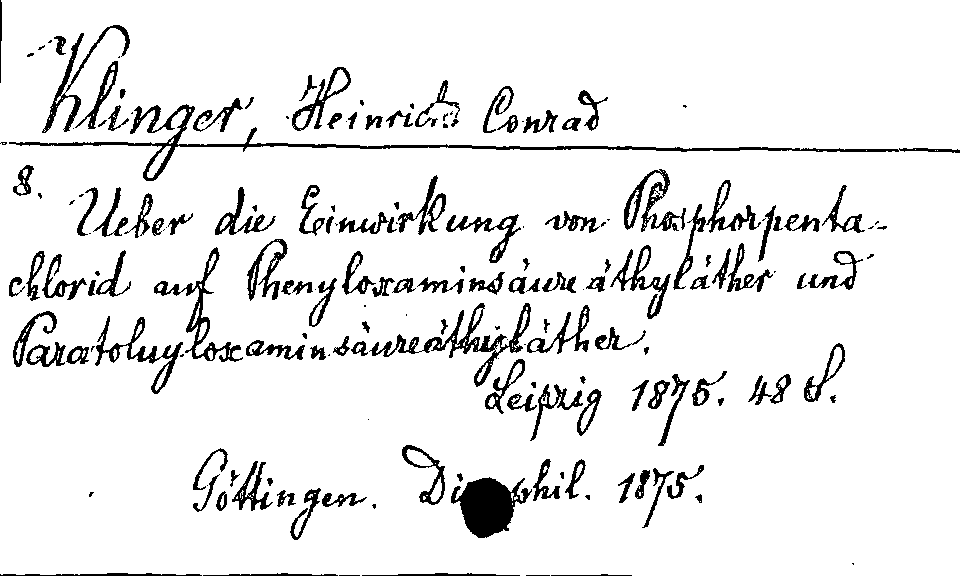 Klinger, Heinrich Conrad
8.
Ueber die Einwirkung von Phosphorpenta-
chlorid auf Phenyloxaminsäureäthyläther und
Paratoluyloxaminsäureäthyläther.
Leipzig 1875. 48 S.
Göttingen. Di phil. 1875.